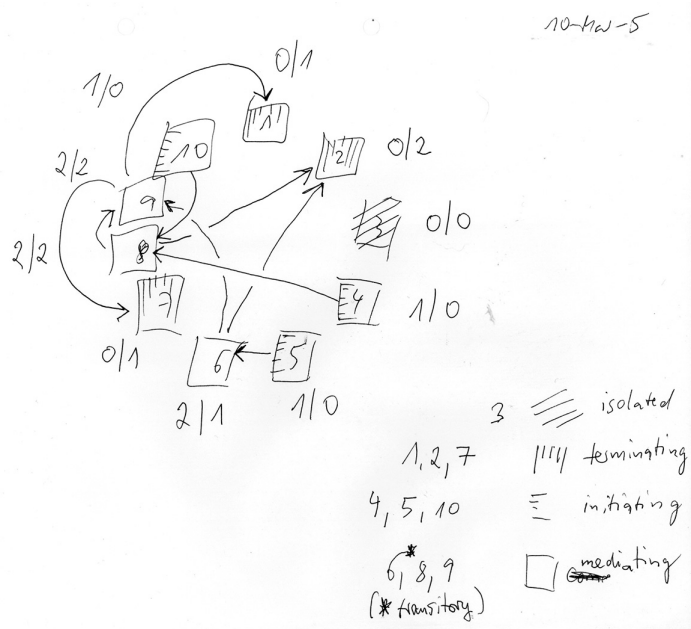 10-Mar-5
0/1
1/0
1
10
2
0/2
2/2
9
0/0
2/2
8
7
4
1/0
0/1
6
5
2/1
1/0
3 isolated
1, 2, 7 terminating
4, 5, 10 initiating
6*, 8, 9 mediating
(* transitory)